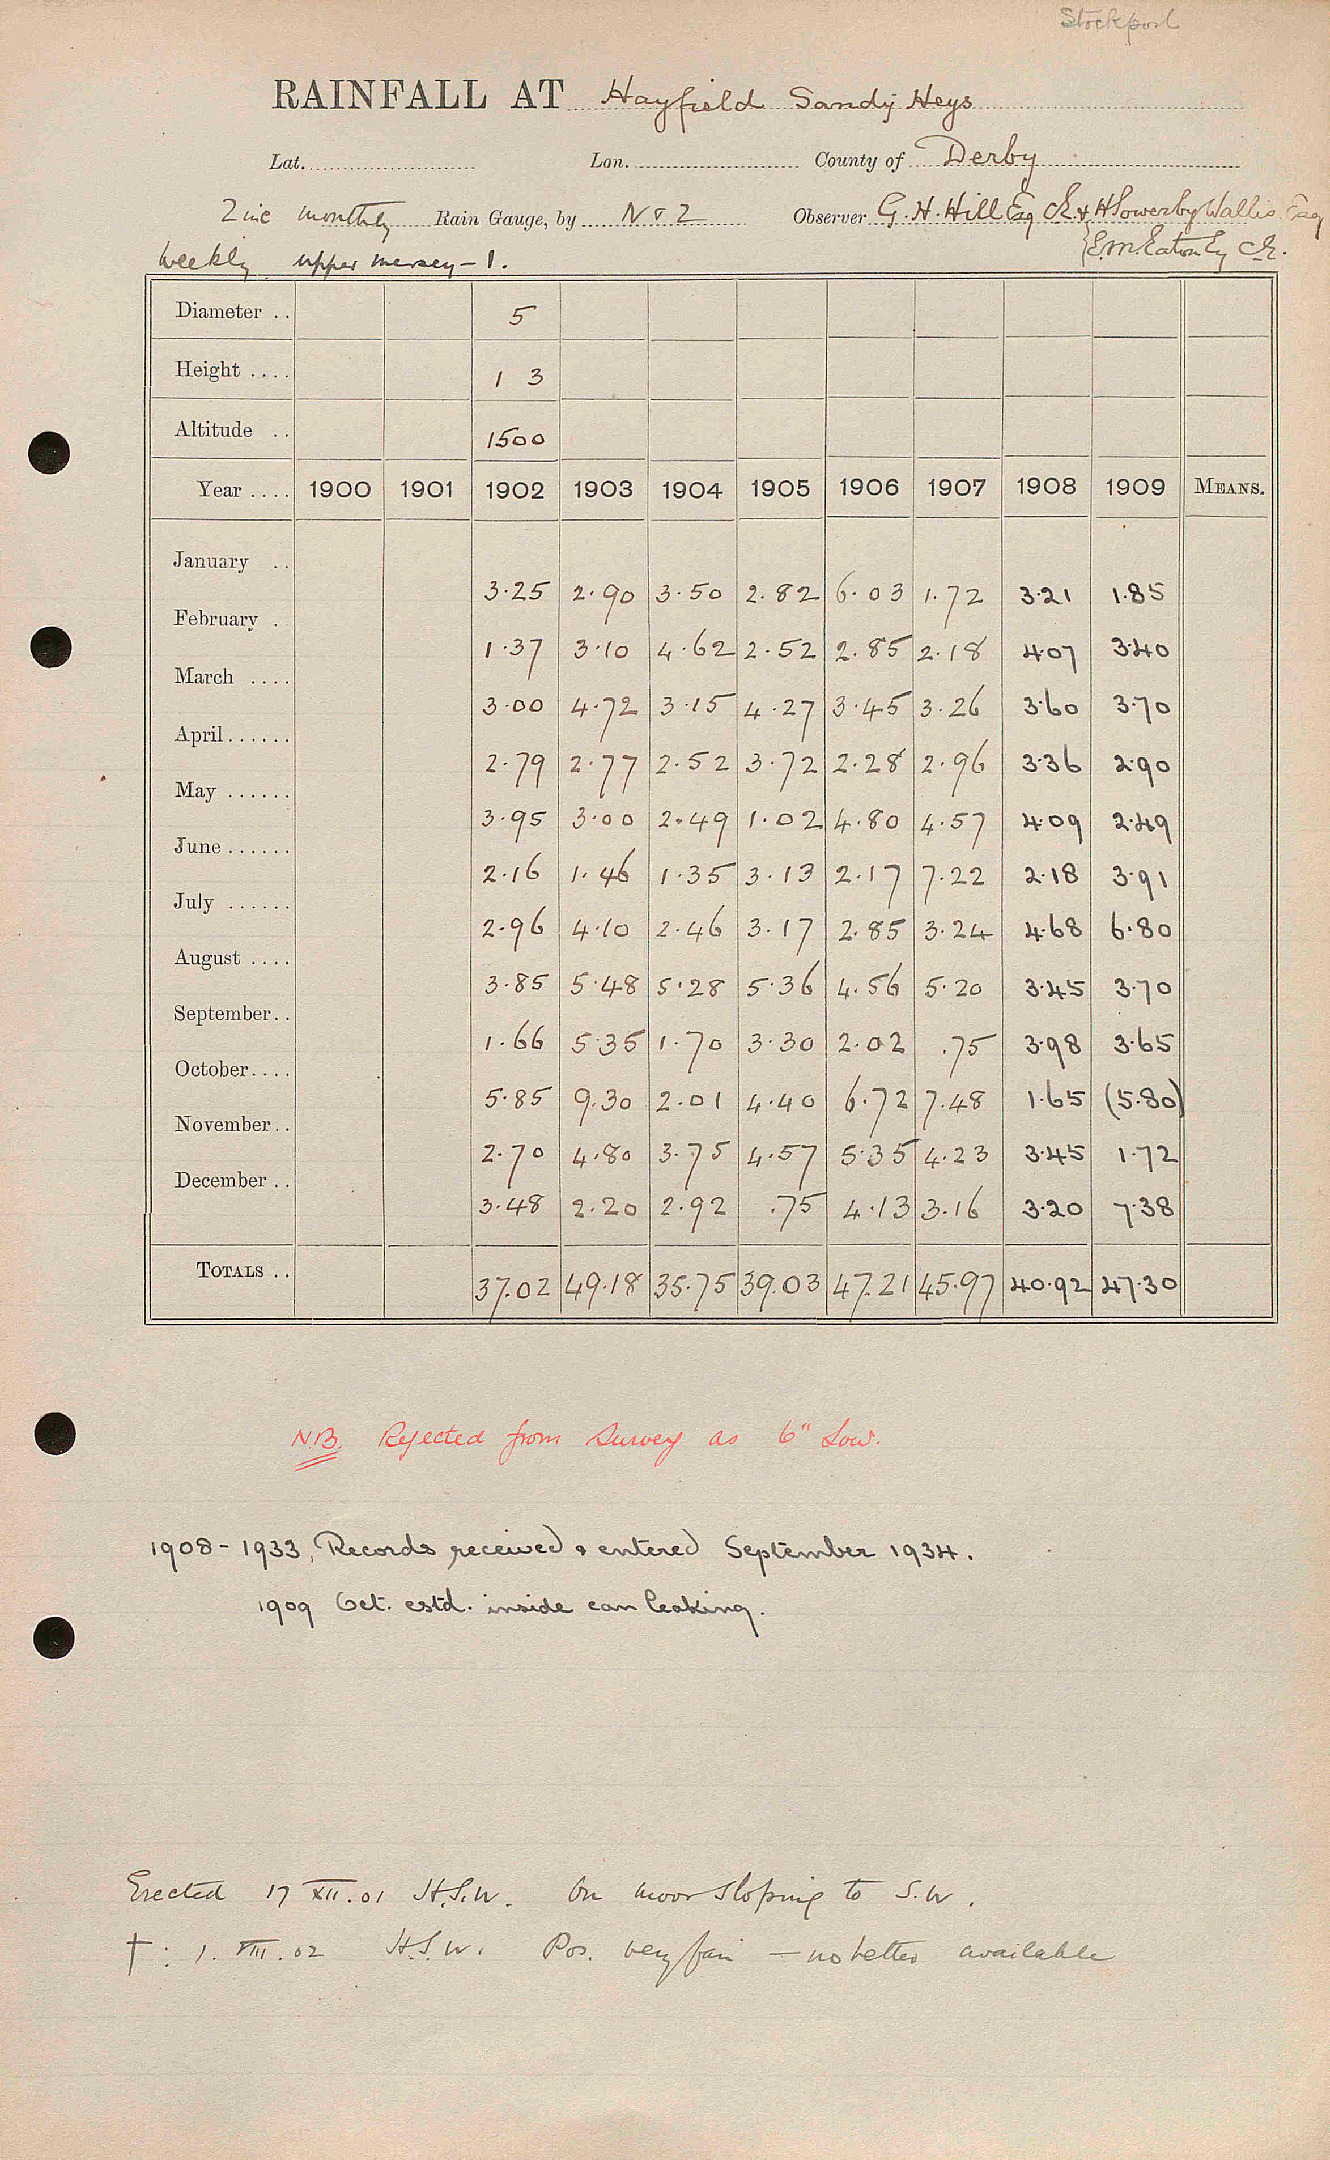 Stockport
RAINFALL AT Hayfield Sandy Heys
Lat. Lon. County of Derby
Zinc monthly Rain Gauge, by No 2 Observer G. H. Hill Esq CE. & H Sowerby Wallis Esq
weekly upper mersey - 1. E. M. Eaton Esq CE.
Diameter .. 5
Height .... 1 3
Altitude .. 1500
Year .... 1900 1901 1902 1903 1904 1905 1906 1907 1908 1909 MEANS.
January .. 3.25 2.90 3.50 2.82 6.03 1.72 3.21 1.85
February . 1.37 3.10 4.62 2.52 2.85 2.18 4.07 3.40
March .... 3.00 4.72 3.15 4.27 3.45 3.26 3.60 3.70
April...... 2.79 2.77 2.52 3.72 2.28 2.96 3.36 2.90
May ...... 3.95 3.00 2.49 1.02 4.80 4.57 4.09 2.49
June...... 2.16 1.46 1.35 3.13 2.17 7.22 2.18 3.91
July ...... 2.96 4.10 2.46 3.17 2.85 3.24 4.68 6.80
August .... 3.85 5.48 5.28 5.36 4.56 5.20 3.45 3.70
September.. 1.66 5.35 1.70 3.30 2.02 .75 3.98 3.65
October.... 5.85 9.30 2.01 4.40 6.72 7.48 1.65 (5.80)
November.. 2.70 4.80 3.75 4.57 5.35 4.23 3.45 1.72
December .. 3.48 2.20 2.92 .75 4.13 3.16 3.20 7.38
TOTALS .. 37.02 49.18 35.75 39.03 47.21 45.97 40.92 47.30
N.B. Rejected from Survey as 6" Low.
1908 - 1933, Records received & entered September 1934.
1909 Oct. estd. inside can leaking.
Erected 17 XII. 01 H.S.W. On moor sloping to S.W.
† : 1. VIII. 02 H.S.W. Pos. very fair — no better available